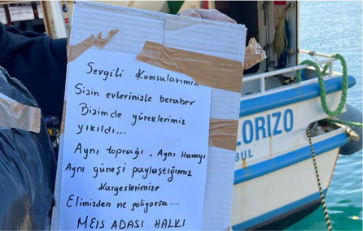 Sevgili Komsularımız
Sizin evlerinizle beraber
Bizimde yüreklerimiz
yıkıldı...
Aynı toprağı, Aynı Havayı
Aynı güneşi paylaştığımız
Kardeşlerimize
Elimizden ne geliyorsa....
MEİS ADASI HALKI
LORIZO
BUL